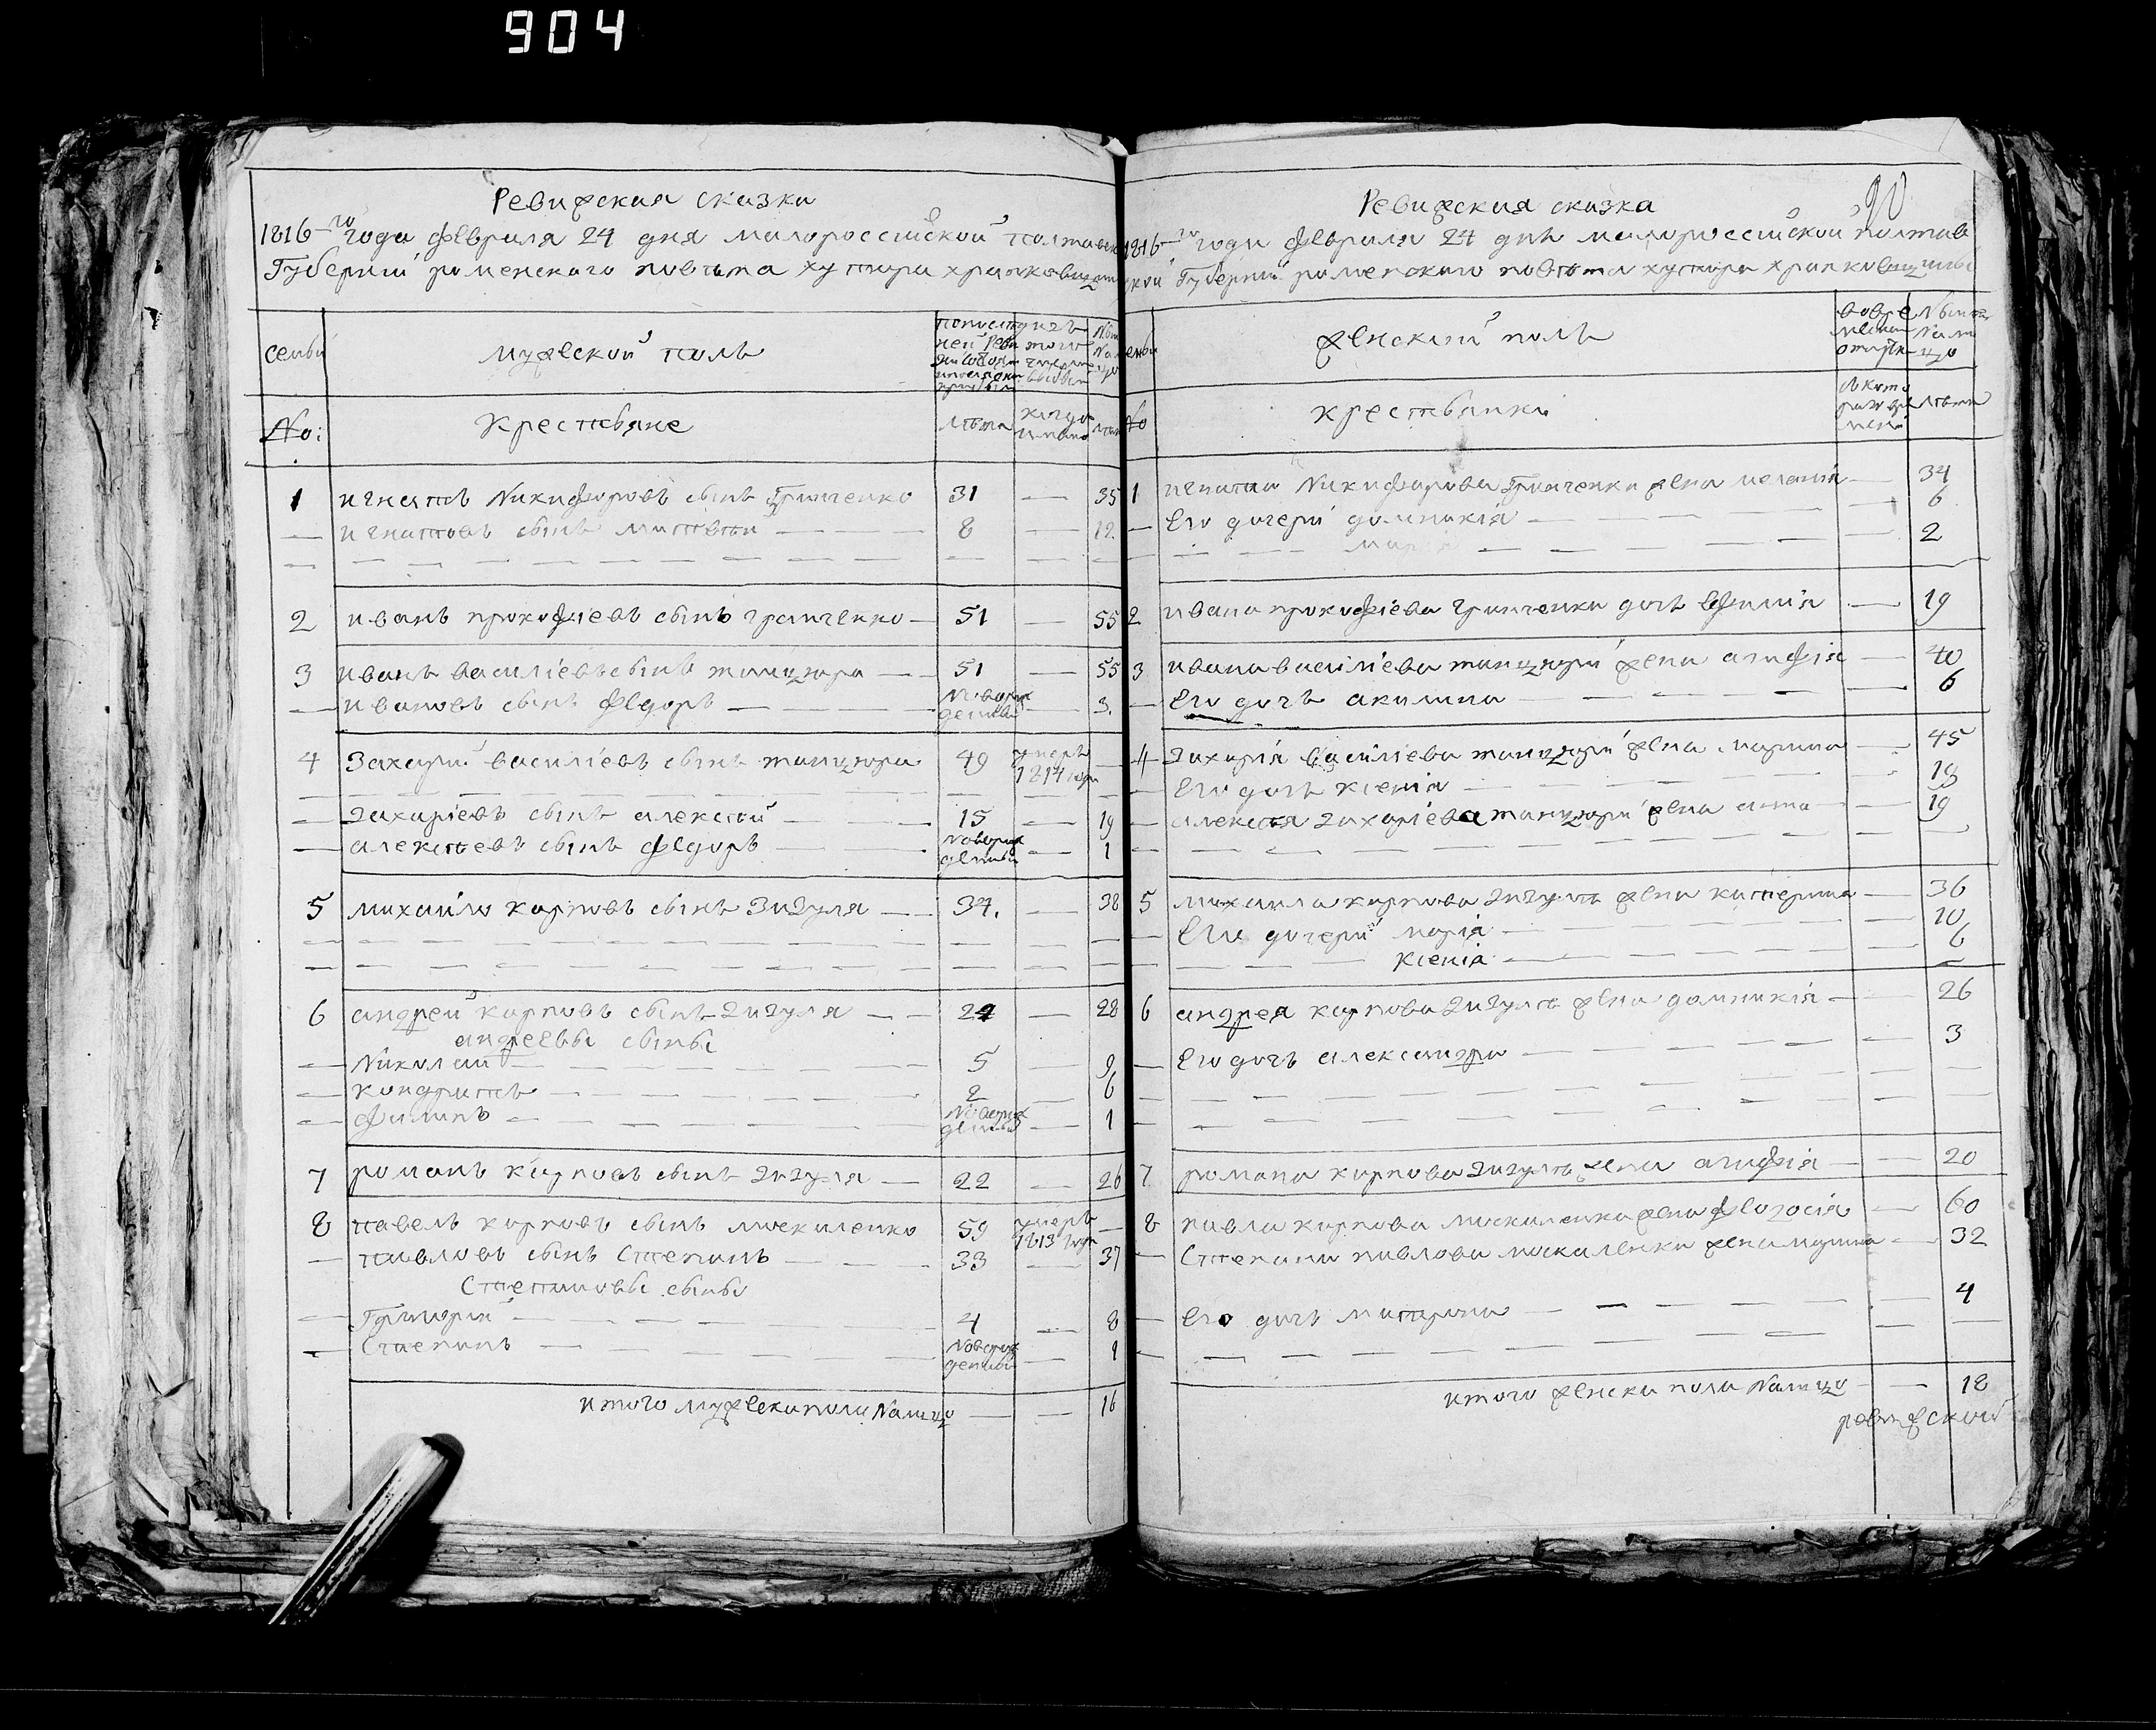 904
Ревизская сказка
1816-го года февраля 24 дня малороссійской полтавск
Губерніи роменского повѣта хутора
семьи
мужеской полъ
No:
Крестьяне
лѣта
когда
1 игнатъ Никифоровъ сынъ Гринченко 31 — 35
— игнатовъ сынъ матвѣй — — 8 — 12
2 иванъ прокофіевъ сынъ гринченко — 51 — 55
3 иванъ василіевъ сынъ танцюра — — 51 — 55
— ивановъ сынъ федоръ — — — Новорож
денный — 3.
4 Захарій василіевъ сынъ танцюра 49 умеръ
1814 года —
— захаріевъ сынъ алексѣй — — 15 — 19
— алексѣевъ сынъ федоръ — — Новорож
денный — 1
5 михайло карповъ сынъ Зизуля — — 34. — 38
6 андрей карповъ сынъ Зизуля — — 24 — 28
андреевы сыны
— Николай — — 5 — 9
— кондратъ — — 2 — 6
— филипъ — — Новорож
денный — 1
7 романъ карповъ сынъ Зизуля — 22 — 26
8 павелъ карповъ сынъ москаленко 59 умеръ
1813 года —
— павловъ сынъ Степанъ — — 33 — 37
Степановы сыны
— Григорій — — 4 — 8
— Степанъ — — Новорож
денный — 1
итого мужеска пола Налицо — — 16
90
Ревизская сказка
1816-го года февраля 24 дня малороссійской полтав
ской Губерніи роменского повѣта хутора
семьи
женскій полъ
No
крестьянки
лѣта
1 игната Никифорова Гринченки жена меланія — 34
— Его дочери домникія — — 6
— — — марія — — 2
2 ивана прокофіева гринченки дочь ефимія — 19
3 ивана василіева танцюри жена агафія — 40
— Его дочь акилина — — 6
4 Захарія василіева танцюри жена марина — 45
— Его дочь ксенія — — 18
— алексѣя захаріева танцюри жена анна — 19
5 михаила карпова зизулѣ жена катерина — 36
— Его дочери марія — — 10
ксенія — — 6
6 андрея карпова зизулѣ жена домникія — 26
— Его дочь александра — — 3
7 романа карпова зизулѣ жена агафія — — 20
8 павла карпова москаленка жена феодосія — 60
— Степана павлова москаленки жена марина — 32
— Его дочь матрона — — 4
итого женска пола Налицо — — 18
ревизской